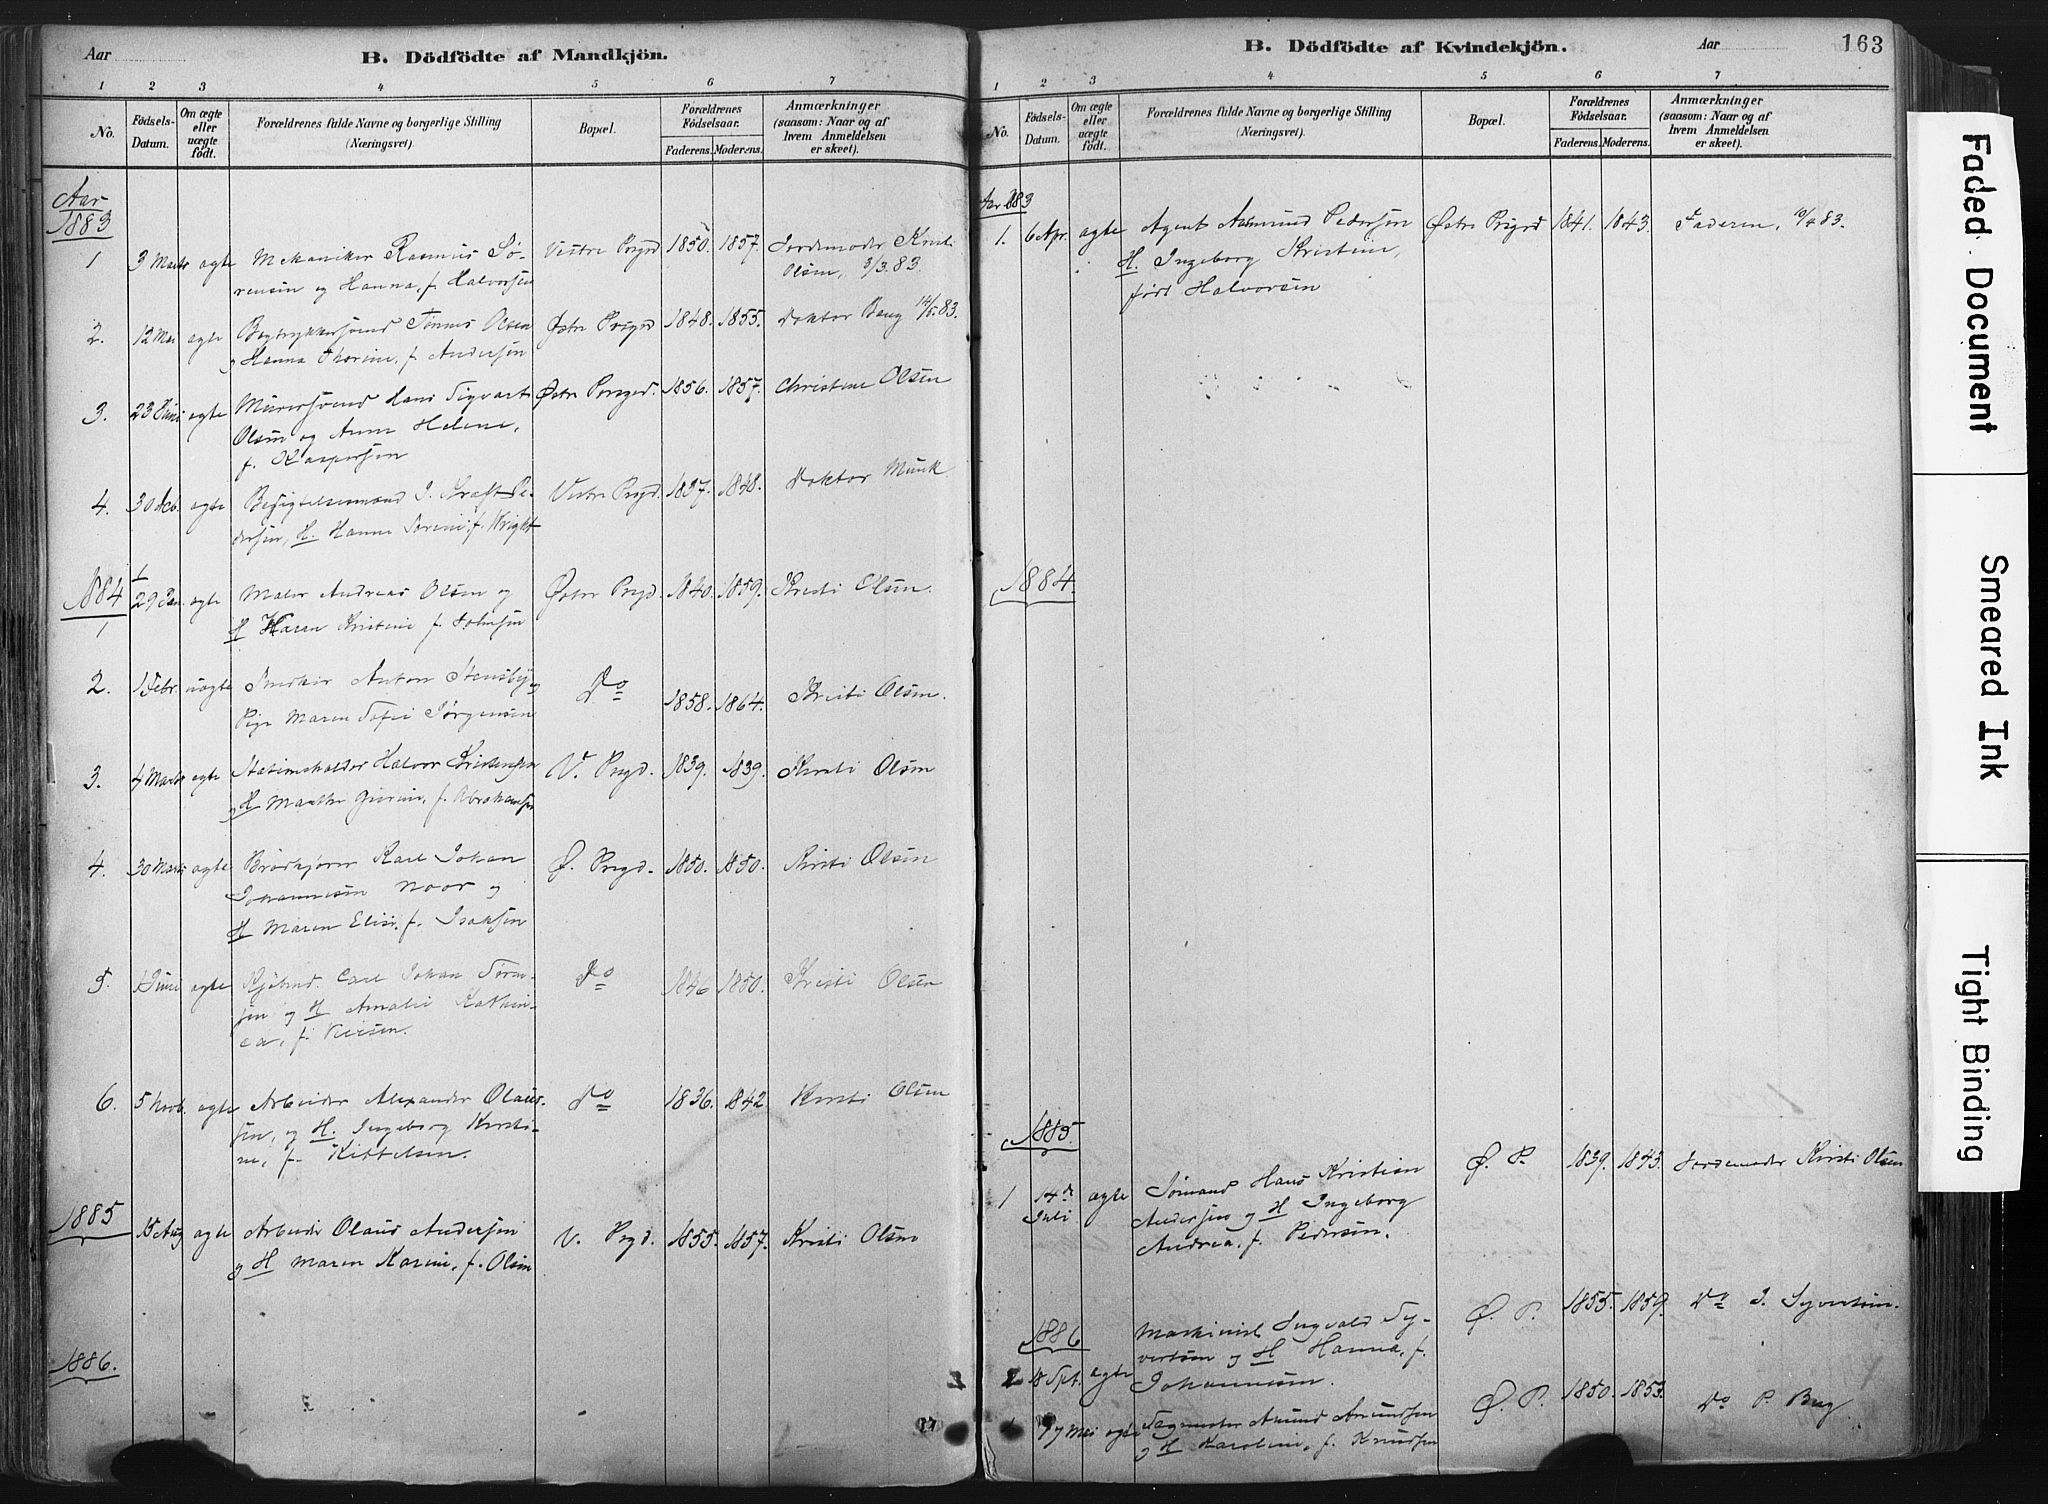 Aar
B. Dödfödte af Mandkjön.
1 2 3 4 5 6 7
No.
Fødsels-Datum.
Om ægte eller uægte født.
Forældrenes fulde Navne og borgerlige Stilling
(Næringsvei).
Bopæl.
Forældrenes Fødselsaar.
Faderens. Moderens.
Anmærkninger
(saasom: Naar og af
hvem Anmeldelsen
er skeet).
Aar
1883
1 3 Marts ægte Mekaniker Rasmus Sø- Vestre Prgrd 1850. 1857. Jordemoder Kristi
rensen og Hanna, f. Halvorsen Olsen, 3/3.83.
2. 12 Mai ægte Bogtrykkersvend Tønnes Olsen Østre Prgrd 1848. 1855. Doktor Bang 14/5.83.
og Hanna Thorine, f. Andersen
3. 23 Juni ægte Murersvend Hans Sigvart Østre Porsgrd. 1856. 1857. Christine Olsen
Olsen og Anne Helene,
f. Kaspersen
4. 30 Dcb. ægte Besigtelsesmand J. Kraft Pe- Vestre Prgd. 1837. 1848. Doktor Munk
dersen, H. Hanna Sørine, f. Wright
1884
1 29 Jan. ægte Maler Andreas Olsen og Østre Prgd. 1840. 1859. Kristi Olsen.
H Karen Kristine f. Johnsen
2. 1 Febr. uægte Snedker Anton Stensby og Do 1858. 1864. Kristi Olsen.
Pige Maren Sofie Jørgensen
3. 4 Marts ægte Stationsholder Halvor Kristensen V. Prgd. 1839. 1839. Kirsti Olsen
og H Marthe Gurine, f. Abrahamsen
4. 30 Marts ægte Brødkjører Karl Johan Ø. Prgd. 1850. 1850. Kirsti Olsen
Johannesen Noor og
H Maren Elise, f. Isaksen
5. 1 Juni ægte Kjøbmd. Carl Johan Do 1846 1850. Kristi Olsen
sen og H Amalie Kathin-
ca, f.
6. 5 Novb. ægte Arbeider Alexander Olaus- Do 1836. 1842. Kirsti Olsen
sen, og H. Ingeborg Kirsti-
ne, f. Kittelsen.
1885
15 Aug ægte Arbeider Olaus Andersen V. Prgd. 1855. 1857. Kristi Olsen
og H Maren Karine, f. Olsen
1886.
B. Dödfödte af Kvindekjön.
Aar
163
1 2 3 4 5 6 7
No.
Fødsels-Datum.
Om ægte eller uægte født.
Forældrenes fulde Navne og borgerlige Stilling
(Næringsvei).
Bopæl.
Forældrenes Fødselsaar.
Faderens. Moderens.
Anmærkninger
(saasom: Naar og af
hvem Anmeldelsen
er skeet).
Aar 883
1. 6 Apr. ægte Agent Asmund Pedersen Østre Prsgrd 1841. 1843. Faderen, 10/4 83.
H. Ingeborg Kristine,
født Halvorsen
1884.
1885.
1 14de Juli ægte Sømand Hans Kristian Ø. P. 1839. 1843. Jordemoder Kirsti Olsen
Andersen og H Ingeborg
Andrea, f. Pedersen.
1886
Maskinist Ingvald Sy- Ø. P. 1855. 1859. Do J. Syvertsen.
vertsen og H Hanna, f.
18 Spt. ægte Johannesen.
7 Mai ægte Sagmester Amund Amundsen Ø. P. 1850. 1853. Do P. Berg
og H Karoline, f. Knudsen
Faded Document
Smeared Ink
Tight Binding